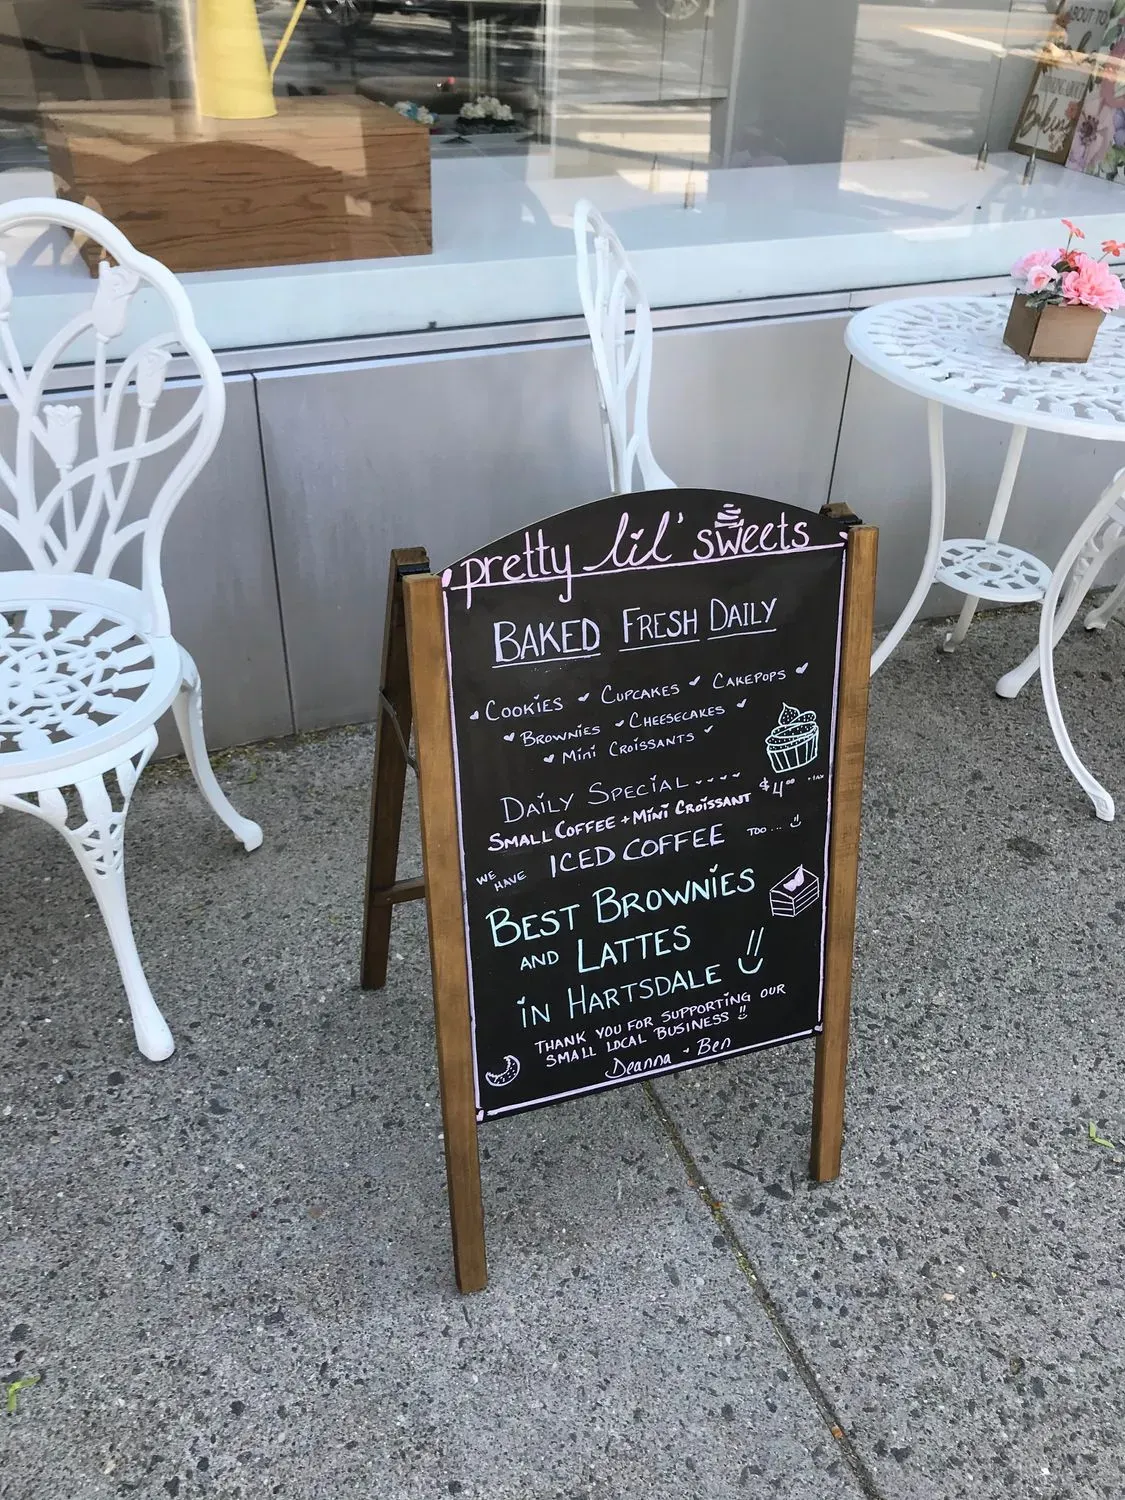 pretty lil' sweets
BAKED FRESH DAILY
COOKIES CUPCAKES CAKEPOPS
BROWNIES CHEESECAKES
MINI CROISSANTS
DAILY SPECIAL ---- $4.00 + TAX
SMALL COFFEE + MINI CROISSANT
WE HAVE ICED COFFEE TOO...
BEST BROWNIES
AND LATTES
IN HARTSDALE
THANK YOU FOR SUPPORTING OUR
SMALL LOCAL BUSINESS
Deanna + Ben
ABOUT TO